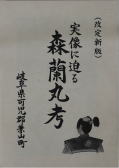 (改定新版)
実像に迫る
森蘭丸考
岐阜県可児郡兼山町